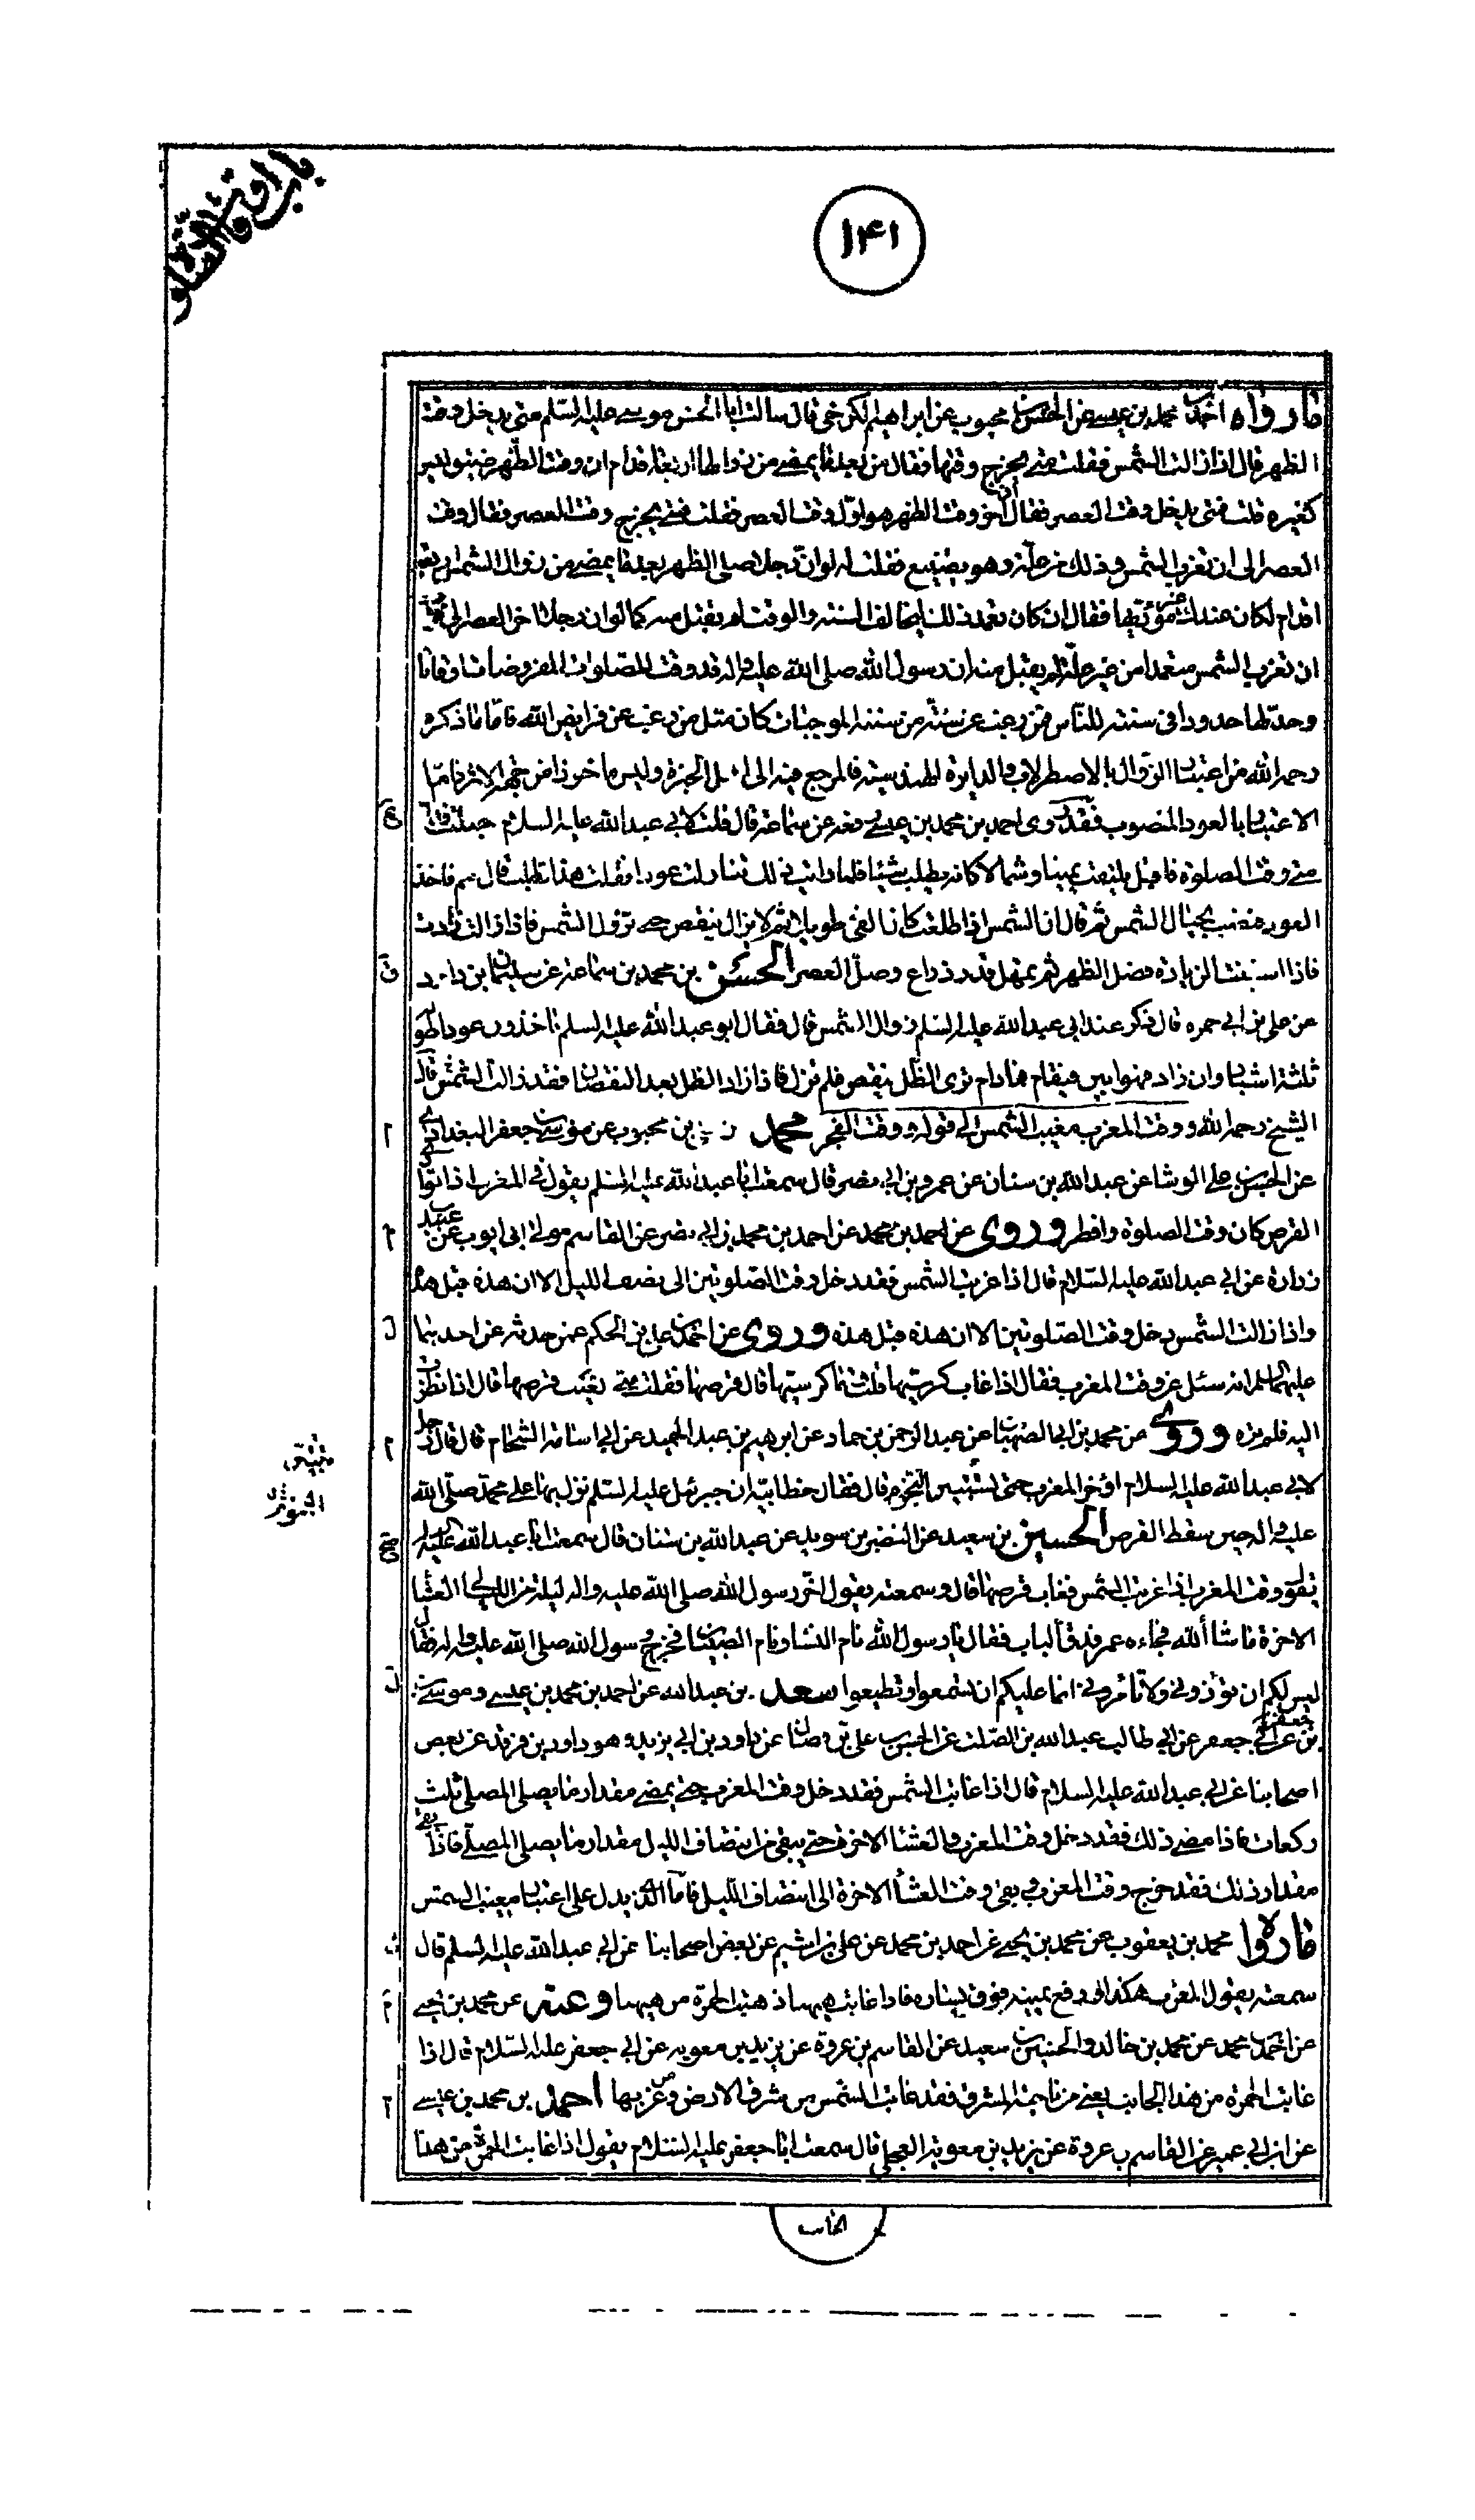 باب اوقات الصلوة
۱۴۱
ما رواه احمد بن محمد بن عيسى عن الحسن بن محبوب عن ابراهيم الكرخى قال سالت ابا الحسن موسى عليه السلم متى يدخل وقت
الظهر قال اذا زالت الشمس فقلت متى يخرج وقتها فقال من بعد ما يمضى من زوالها اربعة اقدام ان وقت الظهر ضيق ليس
كغيره قلت فمتى يدخل وقت العصر فقال ان اخر وقت الظهر هو اول وقت العصر فقلت فمتى يخرج وقت العصر فقال وقت
العصر الى ان تغرب الشمس وذلك من علة وهو تضييع فقلت له لو ان رجلا صلى الظهر بعد ما يمضى من زوال الشمس اربعة
اقدام لكان عندك غير مؤد لها فقال ان كان تعمد ذلك ليخالف السنة والوقت لم يقبل منه كما لو ان رجلا اخر العصر الى قرب
ان تغرب الشمس متعمدا من غير علة لم يقبل منه ان رسول الله صلى الله عليه واله قد وقت للصلوات المفروضات اوقاتا
وحد لها حدودا فى سنته للناس فمن رغب عن سنة من سننه الموجبات كان مثل من رغب عن فرايض الله فاما ما ذكره
رحمه الله من اعتبار الزوال بالاصطرلاب والدايرة الهندسية فالمرجع فيه الى اهل الخبرة وليس ماخوذا من جهة الاثر فاما
الاعتبار بالعود المنصوب فقد روى احمد بن محمد بن عيسى رفعه عن سماعة قال قلت لابى عبد الله عليه السلام جعلت فداك
متى وقت الصلوة فاقبل يلتفت يمينا وشمالا كانه يطلب شيئا فلما رايت ذلك تناولت عودا فقلت هذا تطلب قال نعم فاخذ
العود فنصب بحيال الشمس ثم قال ان الشمس اذا طلعت كان الفئ طويلا ثم لا يزال ينقص حتى تزول الشمس فاذا زالت زادت
فاذا استبنت الزيادة فصل الظهر ثم تمهل قدر ذراع وصل العصر الحسن بن محمد بن سماعة عن سليمان بن داود
عن على بن ابى حمزه قال ذكر عند ابى عبد الله عليه السلم زوال الشمس قال فقال ابو عبد الله عليه السلم تاخذون عودا طوله
ثلثة اشبار وان زاد فهو ابين فيقام فما دام ترى الظل ينقص فلم تزل فاذا زاد الظل بعد النقصان فقد زالت الشمس قال
الشيخ رحمه الله ووقت المغرب مغيب الشمس الى قوله ووقت الفجر محمد بن على بن محبوب عن موسى بن جعفر البغدادى
عن الحسن بن على الوشا عن عبد الله بن سنان عن عمرو بن ابى نصر قال سمعت ابا عبد الله عليه السلم يقول فى المغرب اذا توارى
القرص كان وقت الصلوة وافطر وروى عن احمد بن محمد عن احمد بن محمد بن ابى نصر عن القاسم مولى ابى ايوب عن عبيد بن
زرارة عن ابى عبد الله عليه السلام قال اذا غربت الشمس فقد دخل وقت الصلوتين الى نصف الليل الا ان هذه قبل هذه
واذا زالت الشمس دخل وقت الصلوتين الا ان هذه قبل هذه وروى عن احمد بن على بن الحكم عمن حدثه عن احدهما
عليهما السلم انه سئل عن وقت المغرب فقال اذا غاب كرسيها قلت وما كرسيها قال قرصها فقلت متى يغيب قرصها قال اذا نظرت
اليه فلم تره وروى عن محمد بن ابى الصهبان عن عبد الرحمن بن حماد عن ابرهيم بن عبد الحميد عن ابى اسامة الشحام قال قال رجل
لابى عبد الله عليه السلام اؤخر المغرب حتى تستبين النجوم قال فقال خطابية ان جبرئيل عليه السلم نزل بها على محمد صلى الله
عليه واله حين سقط القرص الحسين بن سعيد عن النضر بن سويد عن عبد الله بن سنان قال سمعت ابا عبد الله عليه السلم
يقول وقت المغرب اذا غربت الشمس فغاب قرصها قال وسمعته يقول اخر رسول الله صلى الله عليه واله ليلة من الليالى العشا
الاخرة ما شا الله فجاءه عمر فدق الباب فقال يا رسول الله نام النسا ونام الصبيان فخرج رسول الله صلى الله عليه واله فقال
ليس لكم ان تؤذونى ولا تامرونى انما عليكم ان تسمعوا وتطيعوا سعد بن عبد الله عن احمد بن محمد بن عيسى وموسى بن
جعفر بن ابى جعفر عن ابى طالب عبد الله بن الصلت عن الحسن بن على بن فضال عن داود بن ابى يزيد وهو داود بن فرقد عن بعض
اصحابنا عن ابى عبد الله عليه السلام قال اذا غابت الشمس فقد دخل وقت المغرب حتى يمضى مقدار ما يصلى المصلى ثلث
ركعات فاذا مضى ذلك فقد دخل وقت المغرب والعشا الاخرة حتى يبقى من انتصاف الليل مقدار ما يصلى المصلى فاذا بقى
مقدار ذلك فقد خرج وقت المغرب وبقى وقت العشا الاخرة الى انتصاف الليل فاما الذى يدل على اعتبار مغيب الشمس
ما رواه محمد بن يعقوب عن محمد بن يحيى عن احمد بن محمد عن على بن اشيم عن بعض اصحابنا عن ابى عبد الله عليه السلم قال
سمعته يقول المغرب هكذا ورفع يمينه فوق يساره فاذا غابت ههنا ذهبت الحمرة من ههنا وعنه عن محمد بن يحيى
عن احمد بن محمد عن محمد بن خالد والحسين بن سعيد عن القاسم بن عروة عن بريد بن معوية عن ابى جعفر عليه السلام قال اذا
غابت الحمرة من هذا الجانب يعنى من ناحية المشرق فقد غابت الشمس من شرق الارض ومن غربها احمد بن محمد بن عيسى
عن ابن ابى عمير عن القاسم بن عروة عن بريد بن معوية العجلى قال سمعت ابا جعفر عليه السلام يقول اذا غابت الحمرة من هذا
الجانب